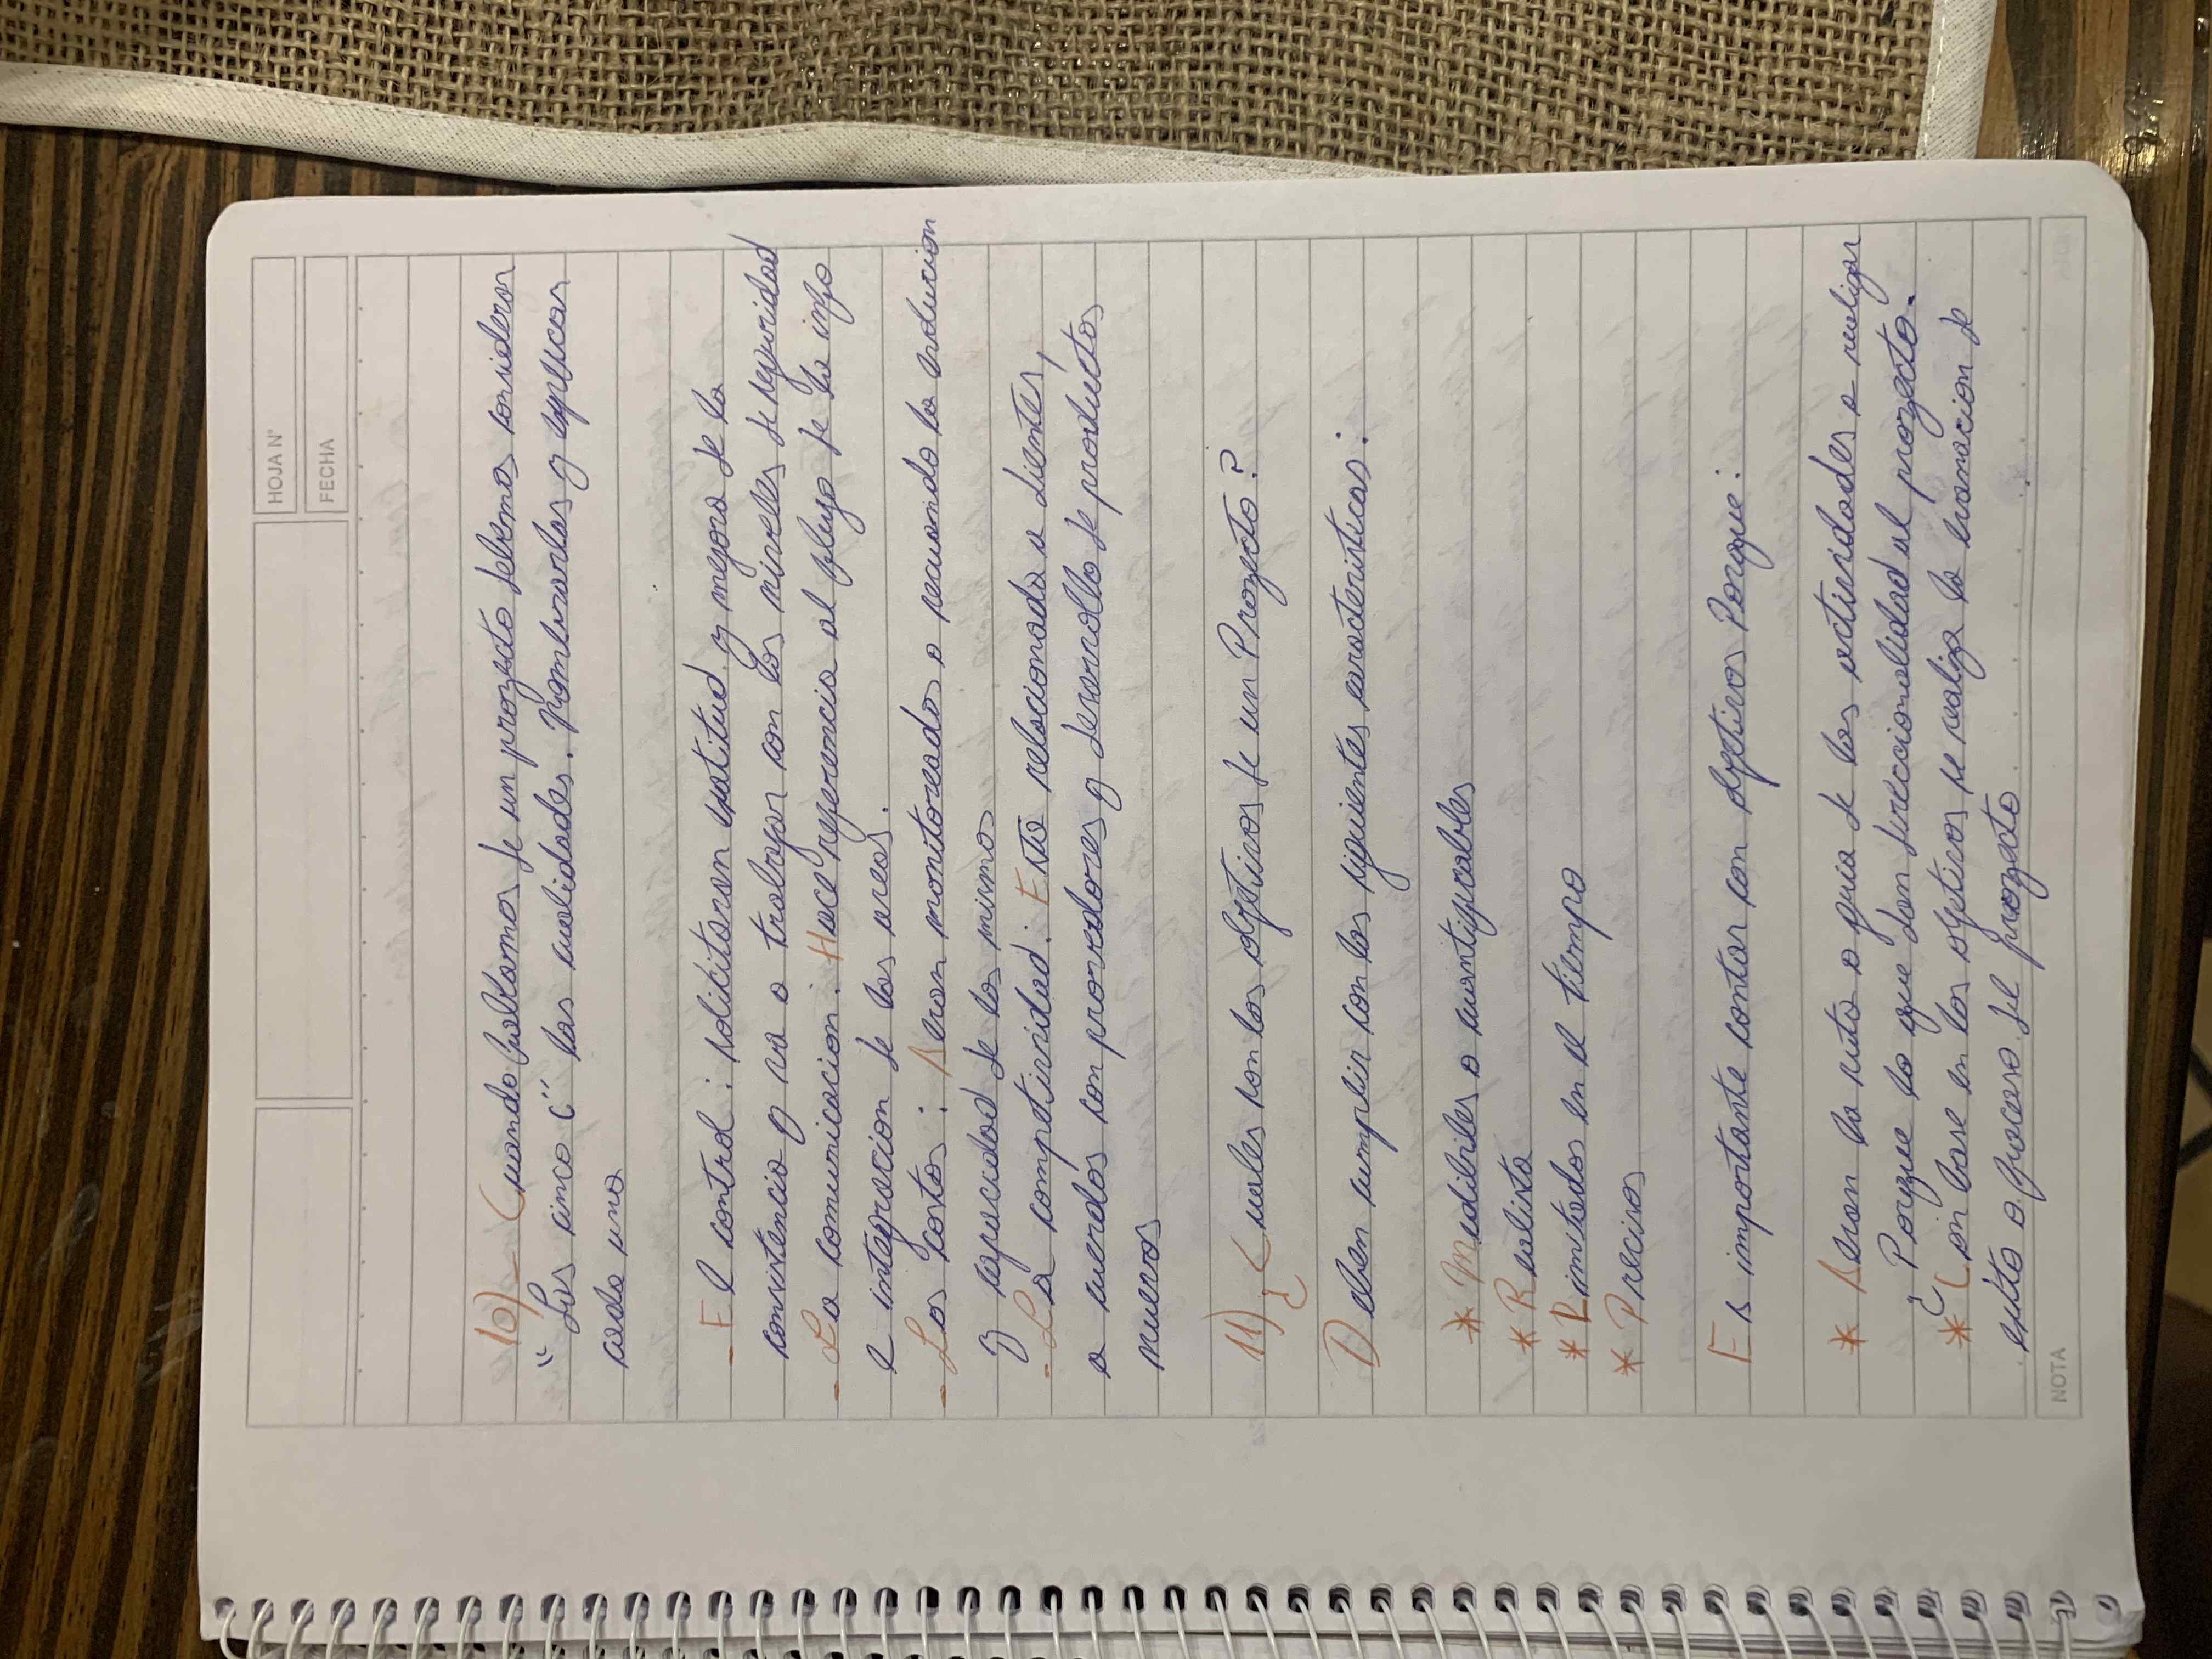 HOJA N°
FECHA
10)- Cuando hablamos de un proyecto debemos considerar
"Las cinco C" las cualidades. Nombrarlas y explicar
cada una
- El control: solicitaran exatitud y mejora de la
consistencia y va a trabajar con los niveles de seguridad
- La comunicacion: Hace referencia al flujo de la info
e integracion de las areas.
- Los costos: Seran monitoreados o recuando la reducion
y capacidad de los mismos
- La competividad: Esta relacionada a clientes,
a cuerdos con provedores y desarrollo de productos
nuevos
11) ¿Cuales son los objetivos de un Proyecto?
Deben cumplir con las siguientes caracteristicas:
* Medibles o cuantificables
* Realista
* Limitados en el tiempo
* Precisos
Es importante contar con objetivos Porque:
* Seran la ruta o guia de las actividades a realizar
¿Porque lo que dan direccionalidad al proyecto.
* Con base en los objetivos se realiza la evaluacion de
exito o fracaso del proyecto
NOTA